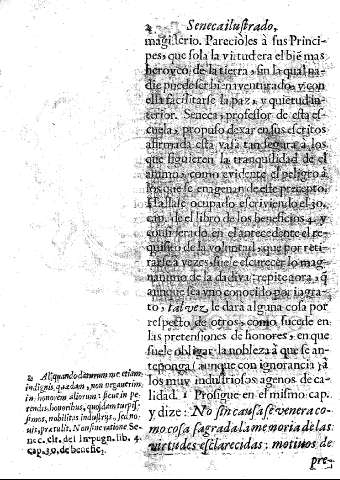 2 Seneca ilustrado,
magisterio. Pareciòles à sus Princi-
pes, que sola la virtud era el biẽ mas
heroyco de la tierra, sin la qual na-
die puede ser bienaventurado, y con
ella facilitarse la paz, y quietud in-
terior. Seneca, professor de esta es-
cuela, propuso dexar en sus escritos
afirmada esta vasa tan segura à los
que siguieren la tranquilidad de el
animo, como evidente el peligro à
los que se enagenan de este precepto.
Hallase ocupado escriviendo el 30.
cap. de el libro de los beneficios 4. y
considerado en el antecedente el re-
quisito de la voluntad, que por reti-
rarse à vezes, suele escurecer lo mag-
nanimo de la dadiva, repite aora, q̃
aunque sea vno conocido por ingra-
to, tal vez, le dara alguna cosa por
respecto de otros, como sucede en
las pretensiones de honores, en que
suele obligar la nobleza à que se an-
teponga (aunque con ignorancia) à
los muy industriosos agenos de ca-
lidad. 1 Prosigue en el mismo cap.
y dize: No sin causa se venera co-
mo cosa sagrada la memoria de las
virtudes esclarecidas; motivos de
pre-
Aliquando daturum me etiam
indignis, quædam, non negaverim,
in honorem aliorum: sicut in pe-
tendis honoribus, quosdam turpis-
simos, nobilitas industrijs, sed no-
vis, prætulit. Non sine ratione Se-
nec. cit. del Inpugn. lib. 4.
cap. 30. de benefic.